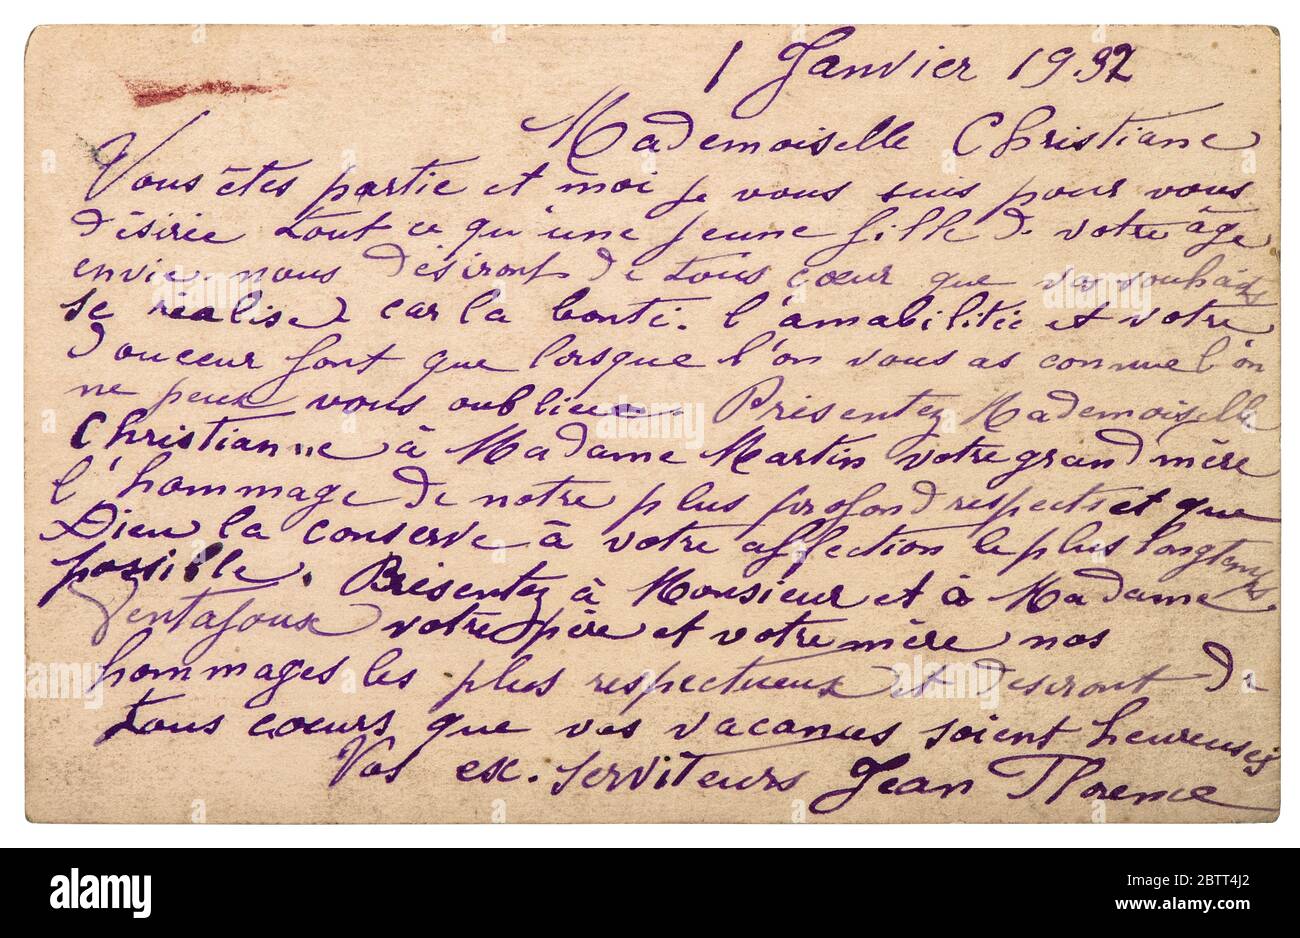 1 Janvier 1932
Mademoiselle Christiane
Vous êtes partie et moi je vous suis pour vous
désirée tout ce qu'une jeune fille de votre âge
envie. nous désiront de tous cœur que vos souhaits
se réalise car la bonté. l'amabilitée et votre
douceur font que lorsque l'on vous as connue l'on
ne peux vous oubliée. Présentez Mademoiselle
Christianne à Madame Martin votre grand mère
l'hommage de notre plus profond respects et que
Dieu la conserve à votre affection le plus longtemps
possible. Présentez à Monsieur et à Madame
votre père et votre mère nos
hommages les plus respectueux et desiront de
tous cœurs que vos vacances soient heureuses
Vos ex. serviteurs Jean Florence
alamy
Image ID: 2BTT4J2
www.alamy.com